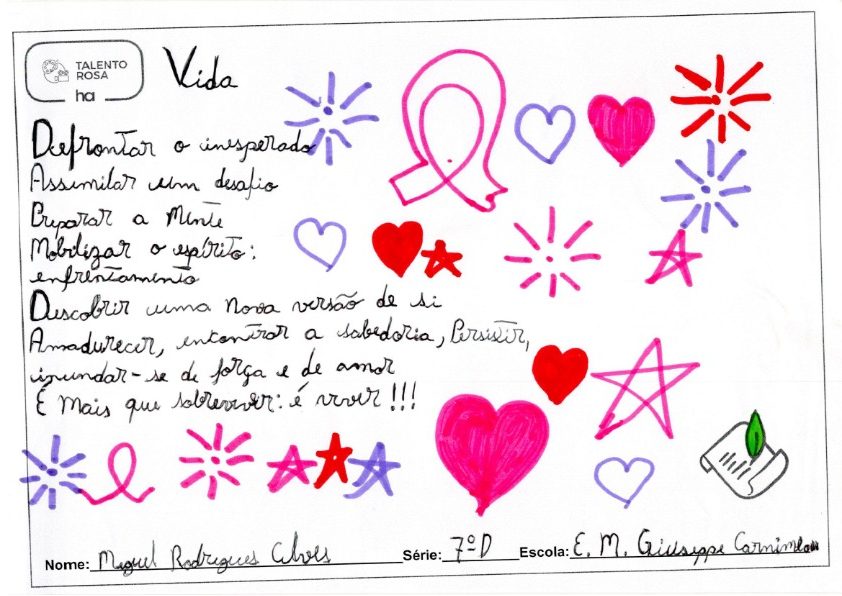 TALENTO
ROSA
ha
Vida
Defrontar o inesperado
Assimilar um desafio
Preparar a Mente
Mobilizar o espírito:
enfrentamento
Descobrir uma nova versão de si
Amadurecer, encontrar a sabedoria, Persistir,
inundar-se de força e de amor
É Mais que sobreviver: é viver!!!
Nome: Miguel Rodrigues Alves Série: 7ºD Escola: E. M. Giuseppe